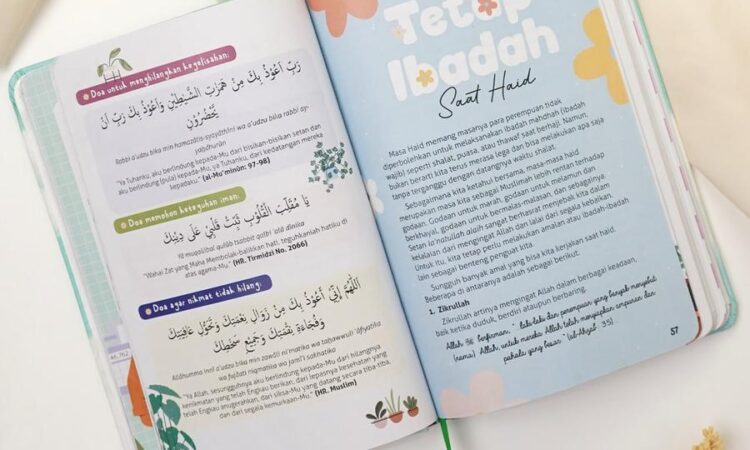 Doa untuk menghilangkan kegelisahan:
رَبِّ اَعُوْذُ بِكَ مِنْ هَمَزٰتِ الشَّيٰطِيْنِ وَاَعُوْذُ بِكَ رَبِّ اَنْ
يَّحْضُرُوْنِ
Rabbi a'udzu bika min hamazātis-syayāthīni wa a'udzu bika rabbi ay-
yahdhurūn
"Ya Tuhanku, aku berlindung kepada-Mu dari bisikan-bisikan setan dan
aku berlindung (pula) kepada-Mu, ya Tuhanku, dari kedatangan mereka
kepadaku." (al-Mu'minūn: 97-98)
Doa memohon keteguhan iman:
يَا مُقَلِّبَ الْقُلُوْبِ ثَبِّتْ قَلْبِيْ عَلَى دِيْنِكَ
Yā muqallibal qulūb tsabbit qalbī 'alā dīnika
"Wahai Zat yang Maha Membolak-balikkan hati, teguhkanlah hatiku di
atas agama-Mu." (HR. Tirmidzi No. 2066)
Doa agar nikmat tidak hilang:
اَللّٰهُمَّ اِنِّيْ اَعُوْذُ بِكَ مِنْ زَوَالِ نِعْمَتِكَ وَتَحَوُّلِ عَافِيَتِكَ
وَفُجَاءَةِ نِقْمَتِكَ وَجَمِيْعِ سَخَطِكَ
Allāhumma innī a'ūdzu bika min zawāli ni'matika wa tahawwuli 'āfiyatika
wa fujāati niqmatika wa jamī'i sakhatika
"Ya Allah, sesungguhnya aku berlindung kepada-Mu dari hilangnya
kenikmatan yang telah Engkau berikan, dari lepasnya kesehatan yang
telah Engkau anugerahkan, dari siksa-Mu yang datang secara tiba-tiba,
dan dari segala kemurkaan-Mu." (HR. Muslim)
Tetap
Ibadah
Saat Haid
Masa Haid memang masanya para perempuan tidak
diperbolehkan untuk melaksanakan ibadah mahdhah (ibadah
wajib) seperti shalat, puasa, atau thawaf saat berhaji. Namun,
bukan berarti kita terus merasa lega dan bisa melakukan apa saja
tanpa terganggu dengan datangnya waktu shalat.
Sebagaimana kita ketahui bersama, masa-masa haid
merupakan masa kita sebagai Muslimah lebih rentan terhadap
godaan. Godaan untuk marah, godaan untuk melamun dan
berkhayal, godaan untuk bermalas-malasan, dan sebagainya.
Setan la'natullah alaih sangat berhasrat menjebak kita dalam
kelalaian dari mengingat Allah dan lalai dari segala kebaikan.
Untuk itu, kita tetap perlu melakukan amalan atau ibadah-ibadah
lain sebagai benteng penguat kita.
Sungguh banyak amal yang bisa kita kerjakan saat haid.
Beberapa di antaranya adalah sebagai berikut.
1. Zikrullah
Zikrullah artinya mengingat Allah dalam berbagai keadaan,
baik ketika duduk, berdiri ataupun berbaring.
Allah ﷻ berfirman, "... laki-laki dan perempuan yang banyak menyebut
(nama) Allah, untuk mereka Allah telah menyiapkan ampunan dan
pahala yang besar." (al-Ahzab: 35)
57